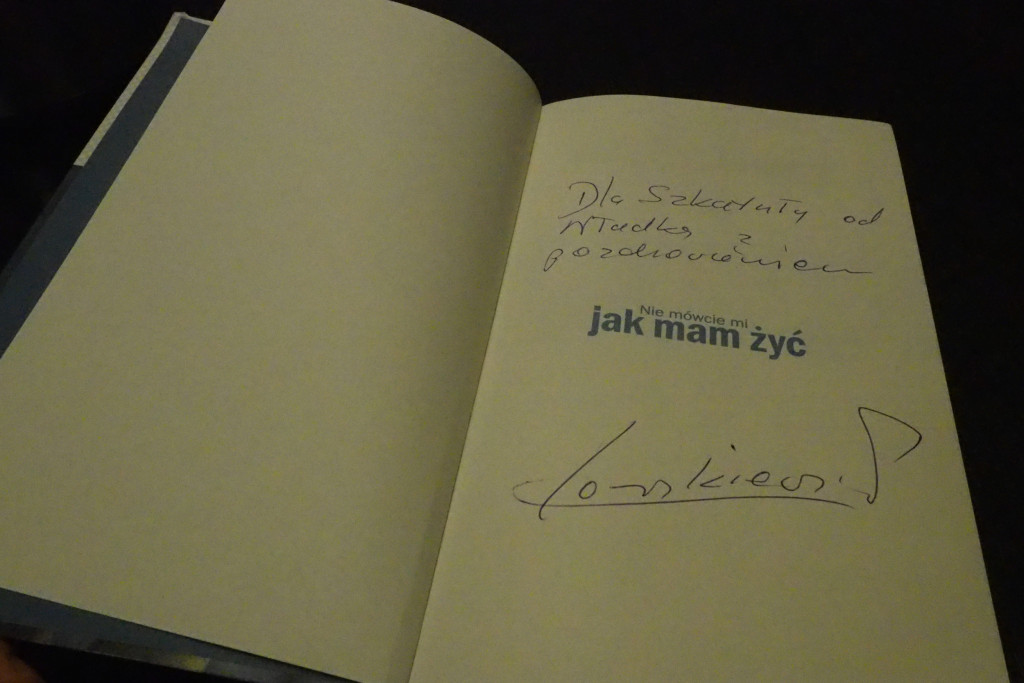 Dla Szkatuły od
Władka z
pozdrowieniem
Nie mówcie mi
jak mam żyć